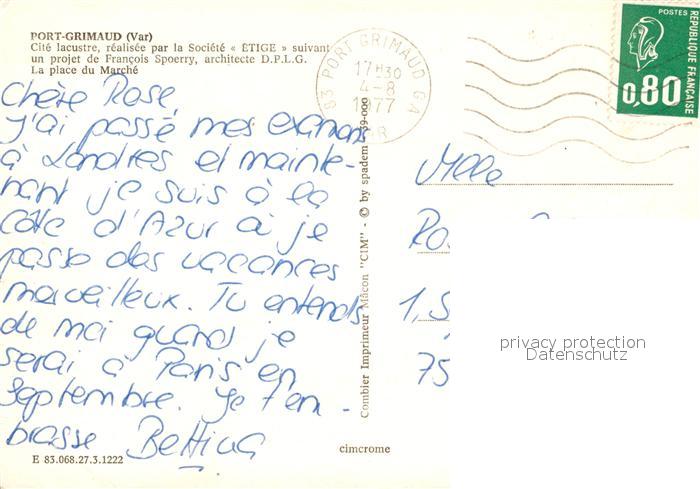 PORT-GRIMAUD (Var)
Cité lacustre, réalisée par la Société « ÉTIGE » suivant
un projet de François Spoerry, architecte D.P.L.G.
La place du Marché
Chère Rose,
J'ai passé mes examans
à Londres et mainte-
nant je suis à la
Côte d'Azur où je
passe des vacances
merveilleux. Tu entends
de moi quand je
serai à Paris en
Septembre. Je t'em-
brasse Bettina
E 83.068.27.3.1222
cimcrome
Combier Imprimeur Mâcon "CIM" - © by spadem
83 PORT GRIMAUD GA
17H30
4-8
1977
VAR
POSTES
RÉPUBLIQUE FRANÇAISE
0,80
Mlle
Ro
1, S
75
privacy protection
Datenschutz